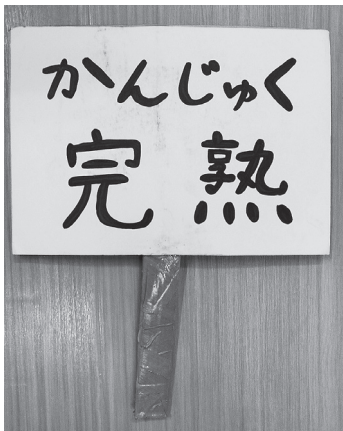 かんじゅく
完熟